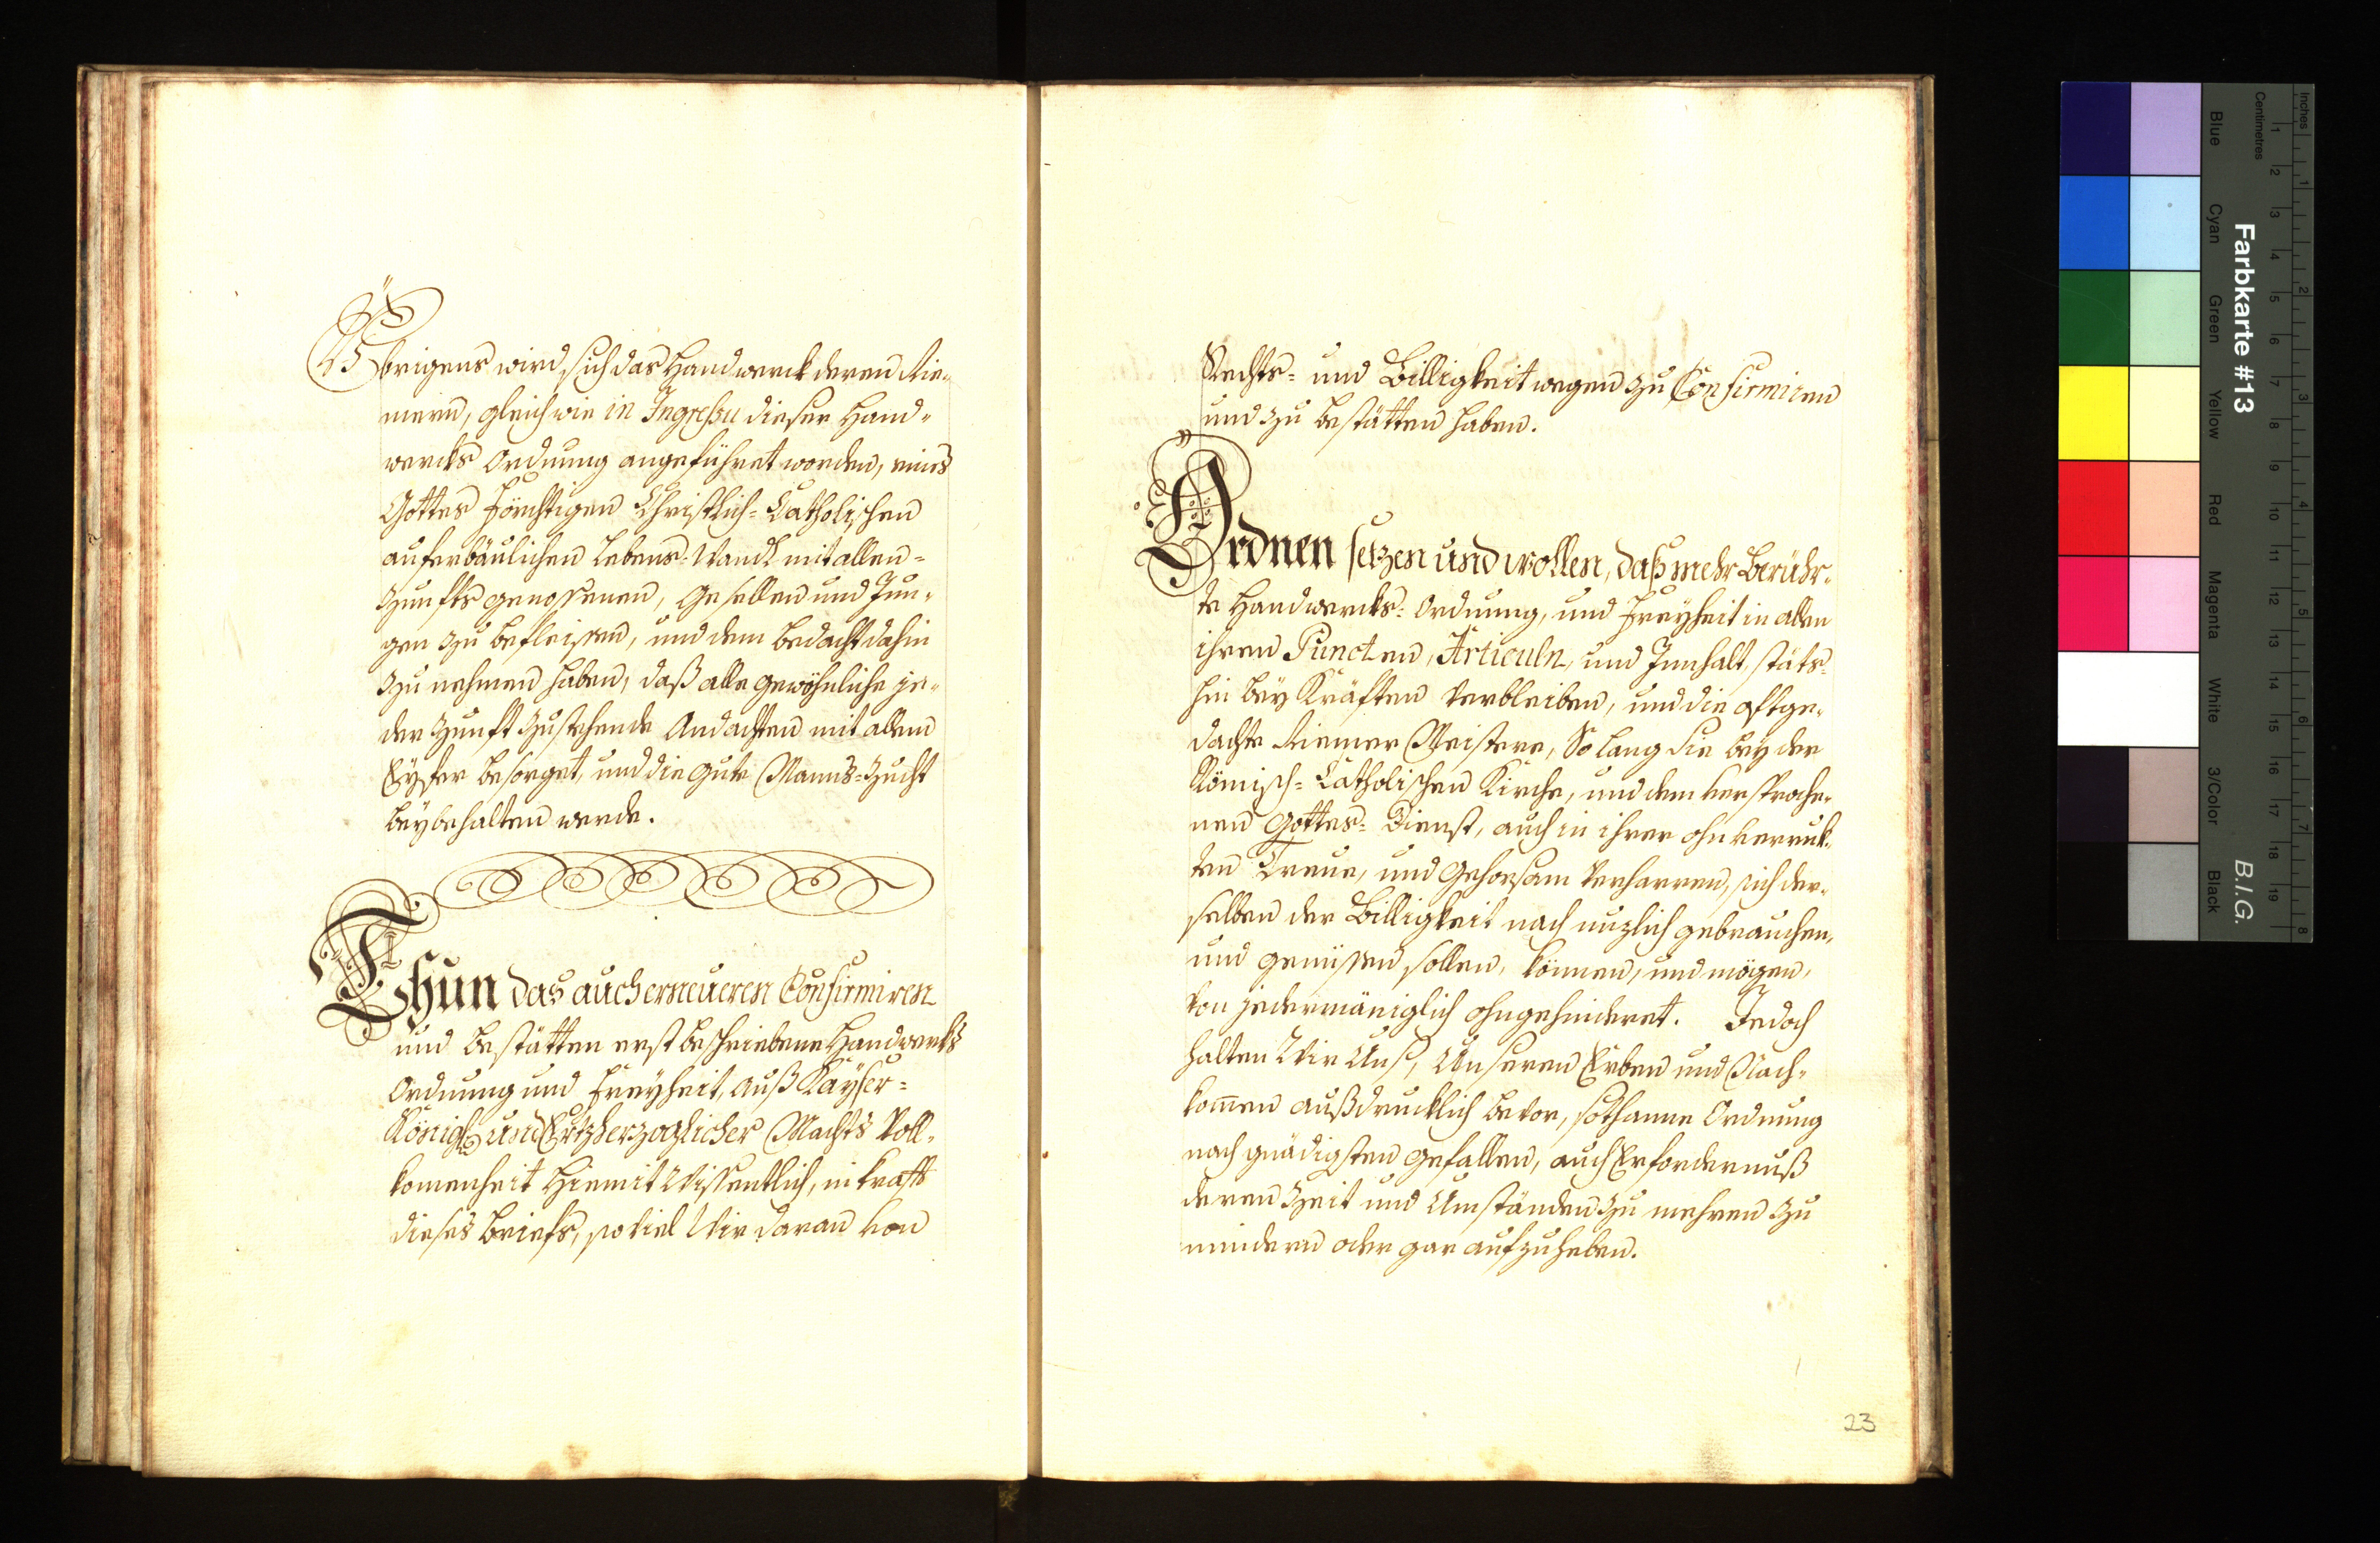 Übrigens wird sich das Handwerck deren Rie-
mern, gleich wie in Ingressu dieser Hand-
wercks Ordnung angeführet worden, eines
Gottes förchtigen Christlich-Catholischen
auferbäulichen Lebens-Wandl mit allen-
Zunfts genossenen, Gesellen und Jun-
gen zu befleissen, und dem bedacht dahin
zu nehmen haben, daß alle gewöhnliche je-
der Zunft zustehende Andachten mit allem
Eyfer besorget, und die gute Manns-Zucht
beybehalten werde.
Thun das auch erneueren Confirmiren
und bestätten erst beschriebene Handwercks
Ordnung und Freyheit, auß Kayser-
Königl. und Ertzherzoglicher Machts Voll-
komenheit Hiemit Wissentlich, in krafft
dieses Briefs, so viel Wir daran von
Rechts- und Billigkeit wegen zu Confirmiren
und zu bestätten haben.
Ordnen setzen und wollen, daß mehr Berühr-
te Handwercks-Ordnung, und Freyheit in allen
ihren Puncten, Articuln, und Innhalt, stäts-
hin bey Kräften verbleiben, und die oftge-
dachte Riemer Meistere, So lang Sie bey der
Römisch-Catholischen Kirche, und dem versproche-
nen Gottes-Dienst, auch in ihrer ohnverruk-
ten Treue, und Gehorsam verharren, sich der-
selben der Billigkeit nach nuzlich gebrauchen,
und genüssen sollen, können, und mögen,
von jedermäniglich ohngehinderet. Jedoch
halten Wir Uns, Unseren Erben und Nach-
komen außdrucklich bevor, sothanne Ordnung
nach gnädigsten gefallen, auch Erfordernuß
deren Zeit und Umständen zu mehren zu
mindern oder gar aufzuheben.
23
Farbkarte #13
B.I.G.
Inches
Centimetres
Blue
Cyan
Green
Yellow
Red
Magenta
White
3/Color
Black
1 2 3 4 5 6 7 8 9 10 11 12 13 14 15 16 17 18 19
1 2 3 4 5 6 7 8